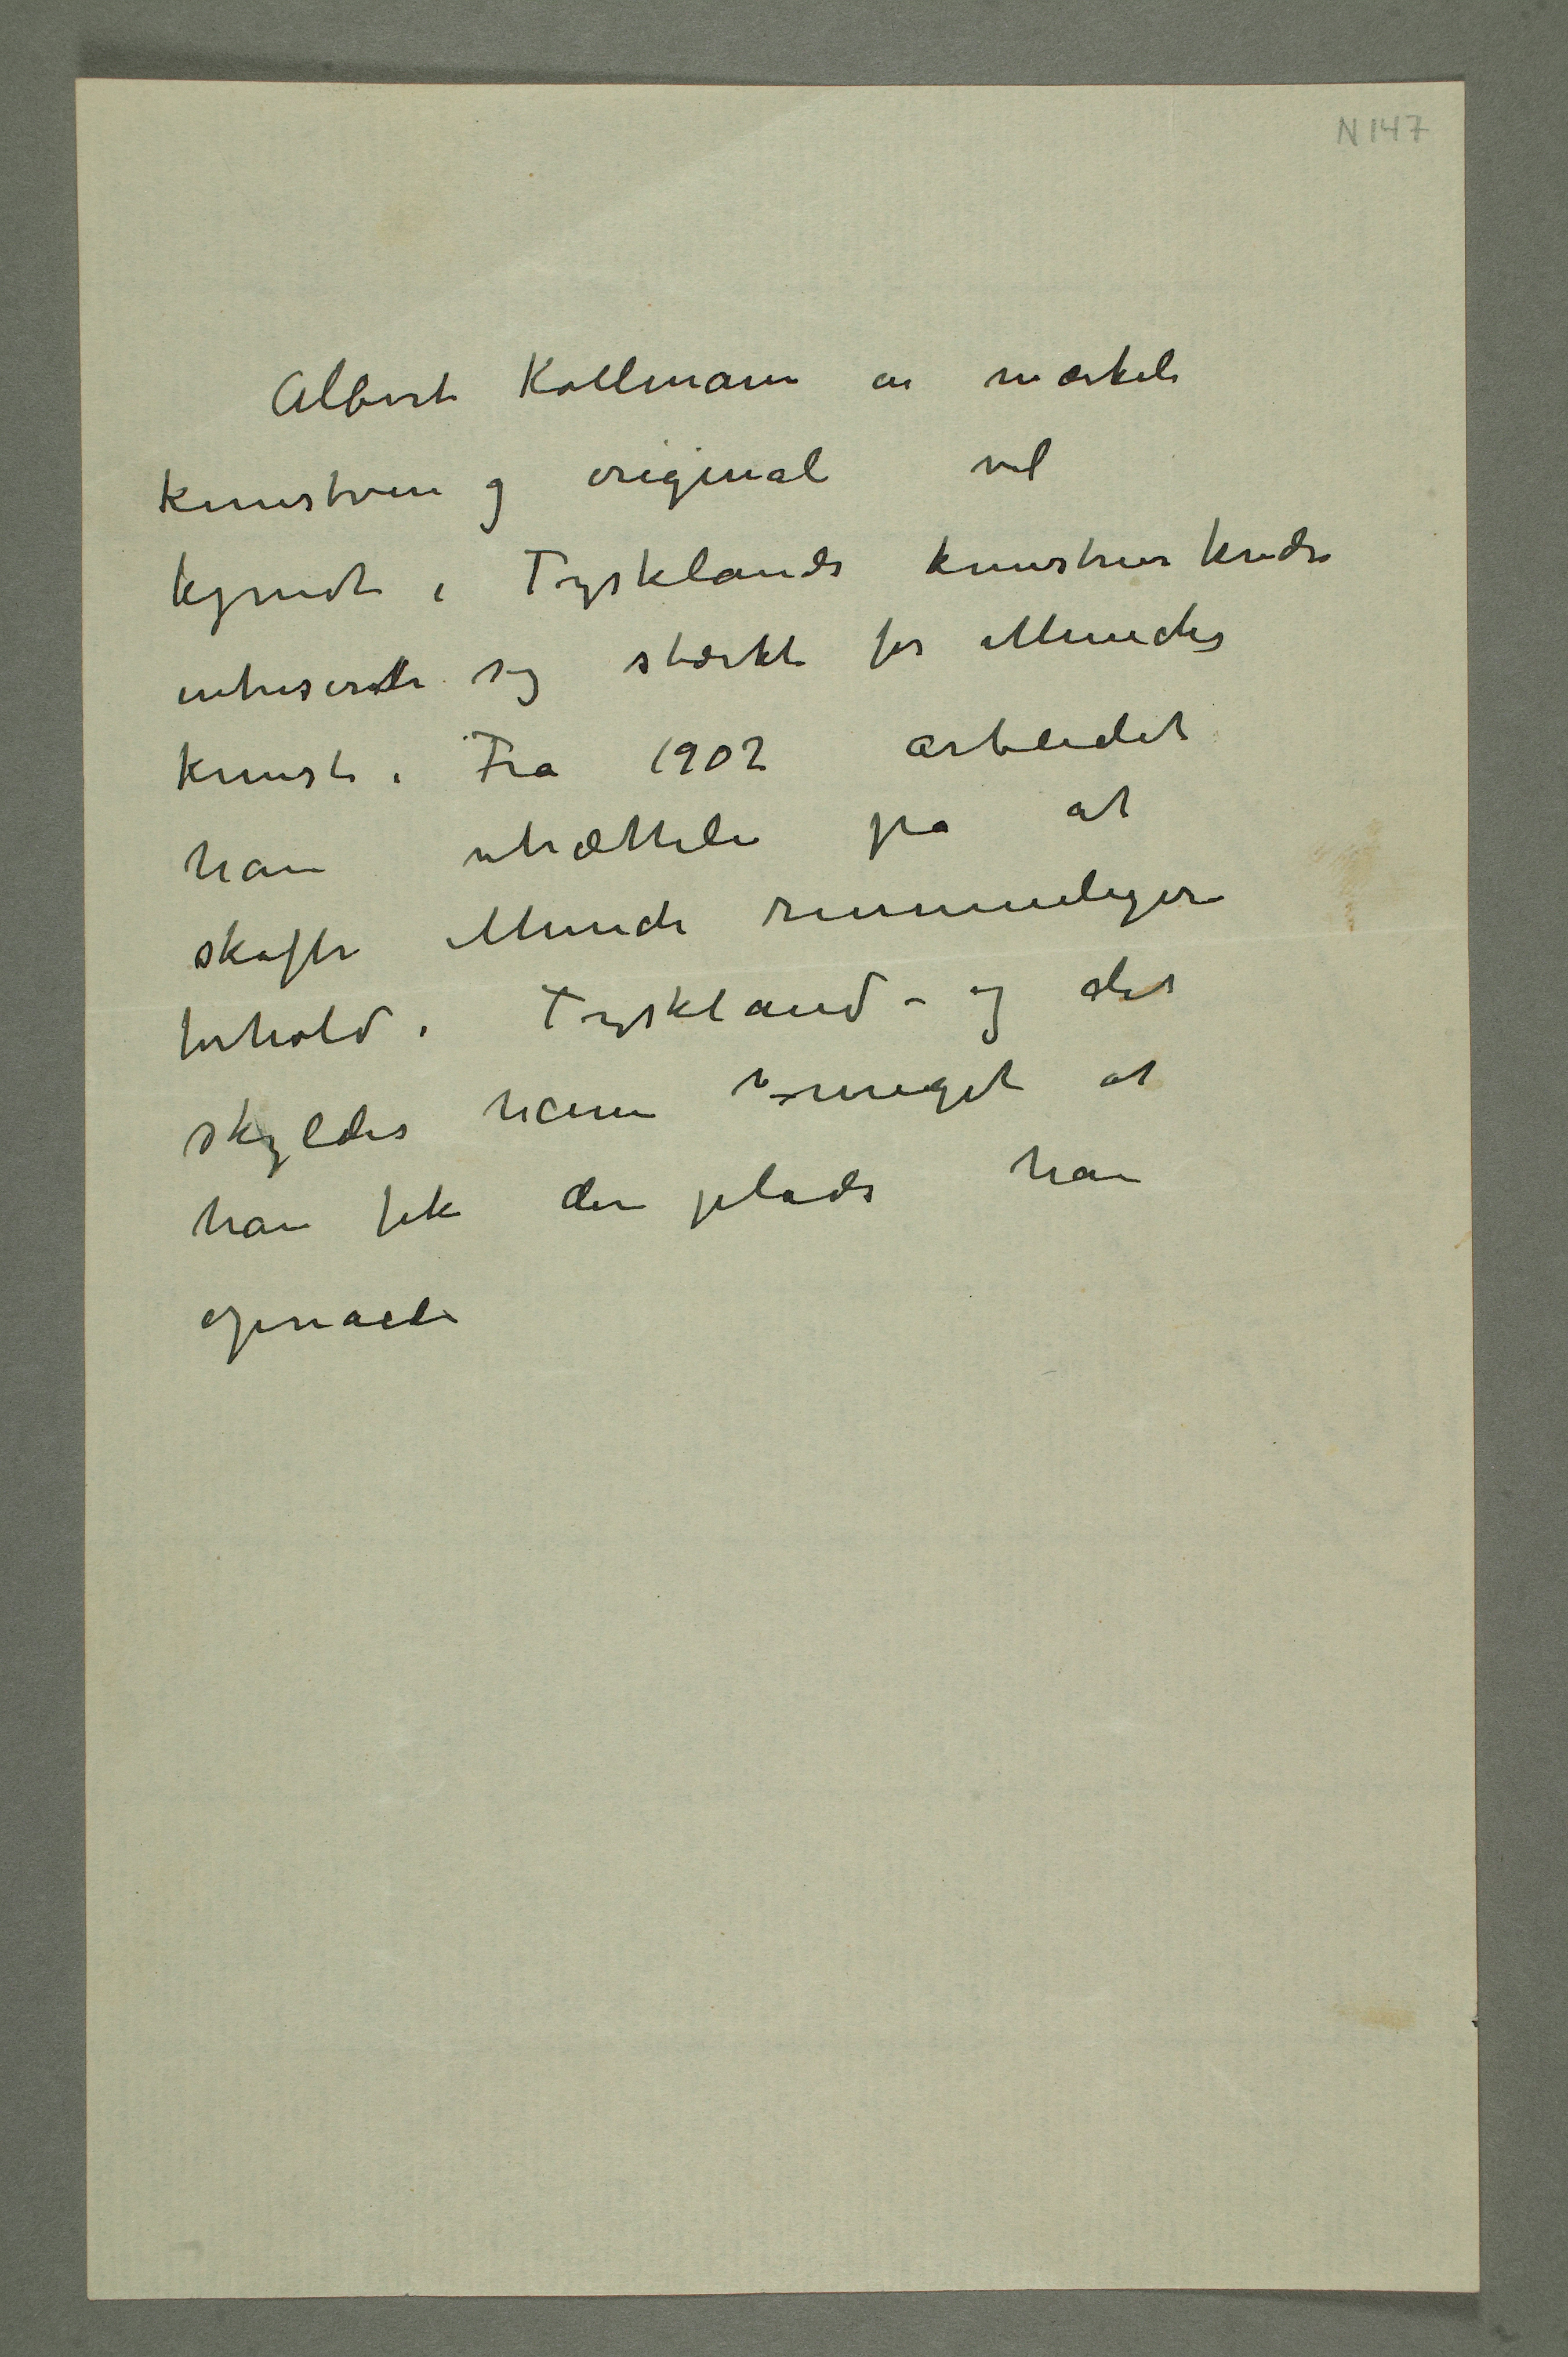 N 147
Albert Kollmann en mærkeli
kunstven og original vel
kjendt i Tysklands kunstnerkredse
intreserte sig stærkt for Munchs
kunst. Fra 1902 arbeidet
han utrættelig på at
skaffe Munch rummeligere
forhold i Tyskland – og det
skyldes ham meget at
han fik den plads han
opnåede